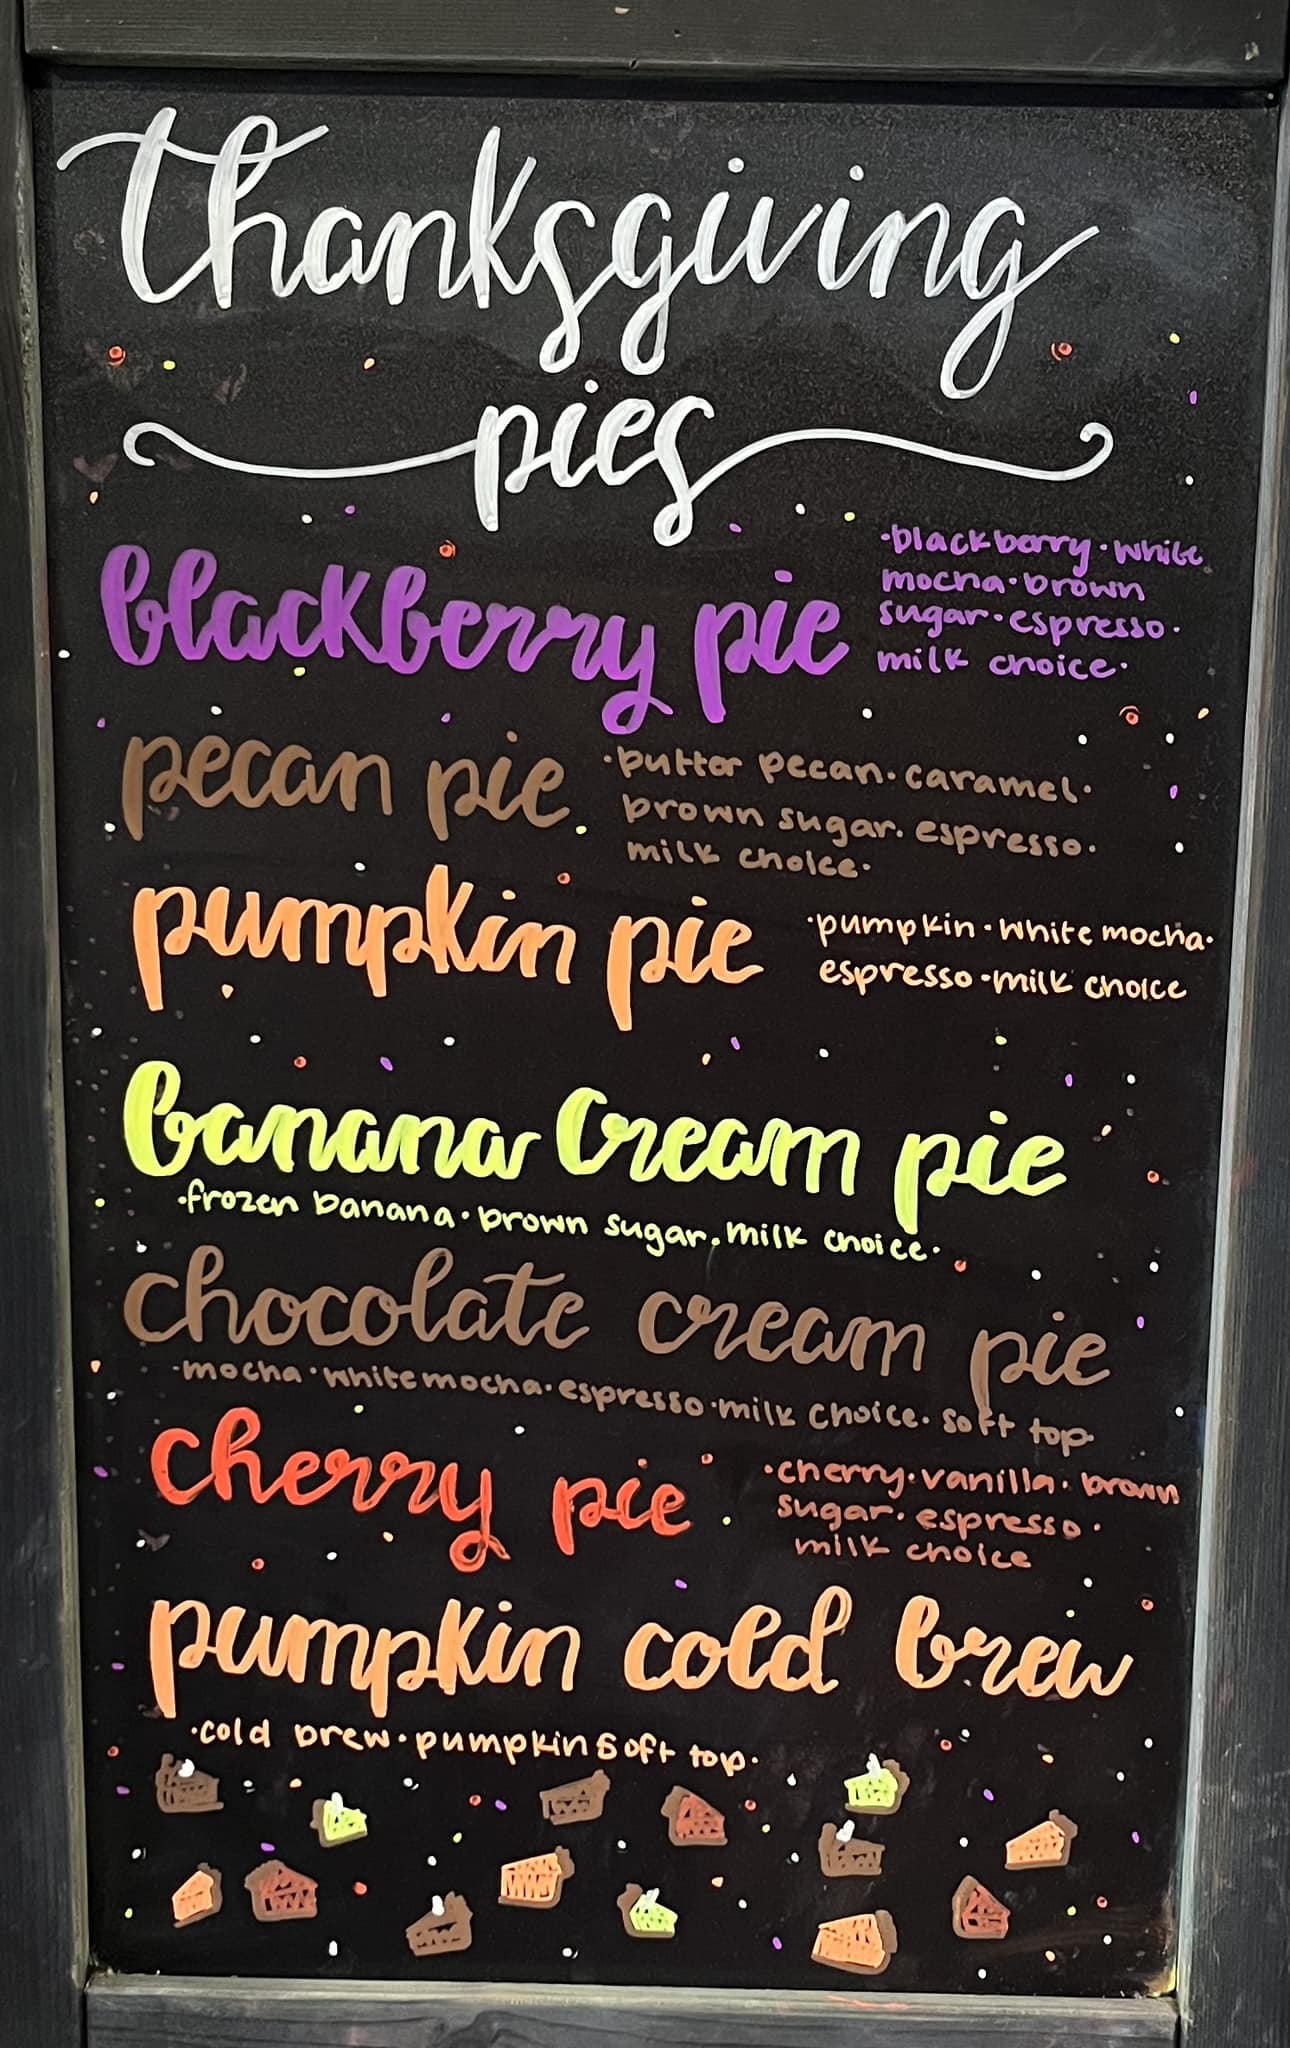 thanksgiving
pies
blackberry pie
·blackberry·white
mocha·brown
sugar·espresso·
milk choice·
pecan pie
·butter pecan·caramel·
brown sugar·espresso·
milk choice·
pumpkin pie
·pumpkin·white mocha·
espresso·milk choice
banana cream pie
·frozen banana·brown sugar·milk choice·
chocolate cream pie
·mocha·white mocha·espresso·milk choice·soft top·
cherry pie
·cherry·vanilla·brown
sugar·espresso·
milk choice
pumpkin cold brew
·cold brew·pumpkin soft top·